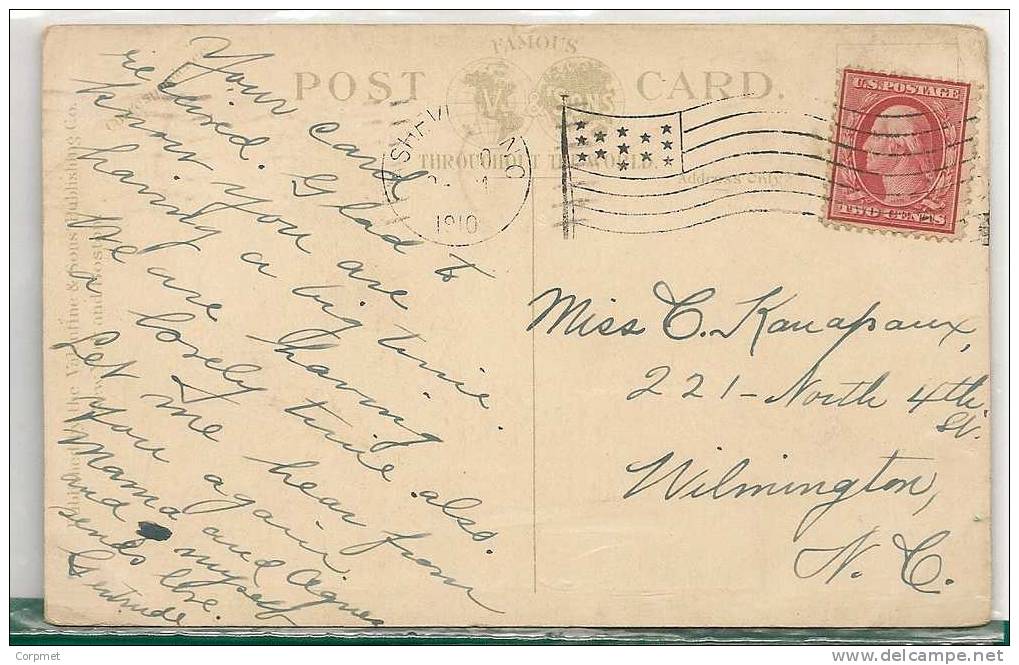 FAMOUS
POST CARD.
& SONS
THROUGHOUT THE WORLD
Address Only
U.S. POSTAGE
TWO CENTS
1910
Your card
recieved. Glad to
know you are
having a big time.
We are having
a lovely time also.
Let me hear from
you again
Mama and Agnes
and myself
sends love.
Gertrude
Miss C. Kanapaux,
221-North 4th
St.
Wilmington,
N. C.
Valentine & Sons Publishing Co.
and Boston
Corpmet
www.delcampe.net